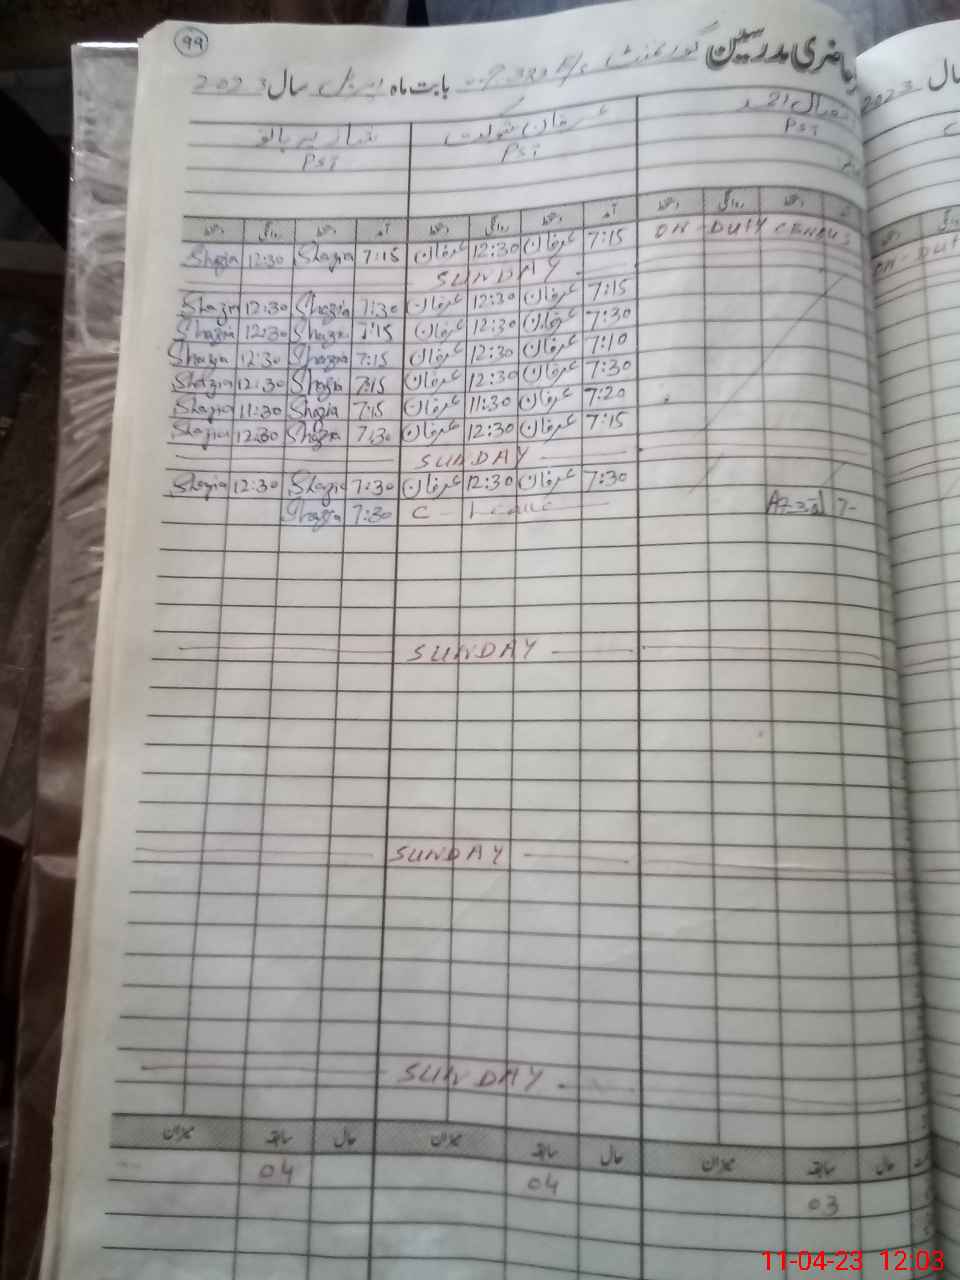 99
حاضری مدرسین گورنمنٹ بابت ماہ اپریل سال 2023
عرفان شوکت
PST PST PST
دستخط روانگی دستخط آمد دستخط روانگی دستخط آمد دستخط روانگی دستخط
Shazia 12:30 Shazia 7:15 عرفان 12:30 عرفان 7:15 ON - DUTY CENSUS
SUNDAY
Shazia 12:30 Shazia 7:30 عرفان 12:30 عرفان 7:15
Shazia 12:30 Shazia 7:15 عرفان 12:30 عرفان 7:30
Shazia 12:30 Shazia 7:15 عرفان 12:30 عرفان 7:10
Shazia 12:30 Shazia 7:15 عرفان 12:30 عرفان 7:30
Shazia 11:30 Shazia 7:15 عرفان 11:30 عرفان 7:20
Shazia 12:30 Shazia 7:30 عرفان 12:30 عرفان 7:15
SUNDAY
Shazia 12:30 Shazia 7:30 عرفان 12:30 عرفان 7:30
Shazia 7:30 C - Leave 7-
SUNDAY
SUNDAY
SUNDAY
میزان سابقہ حال میزان سابقہ حال میزان سابقہ حال
04 04 03
سال 2023
ON - DUT
11-04-23 12:03